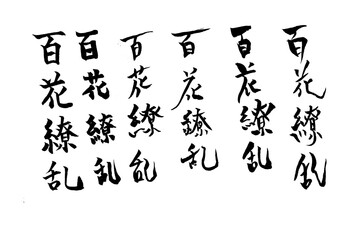 百花繚乱
百花繚乱
百花繚乱
百花繚乱
百花繚乱
百花繚乱